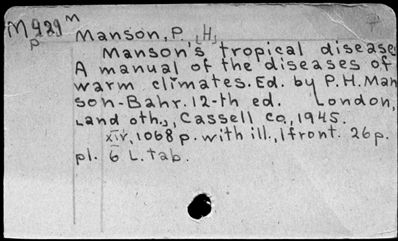 M929 m
p
Manson, P. H.
Manson's tropical disease
A manual of the diseases of
warm climates. Ed. by P.H. Man
son-Bahr. 12-th ed. London,
and oth., Cassell Co., 1945.
XIV, 1068 p. with ill., 1 front. 26 p.
pl. 6 L. tab.